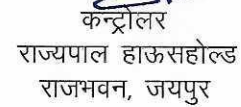 कन्ट्रोलर
राज्यपाल हाऊसहोल्ड
राजभवन, जयपुर